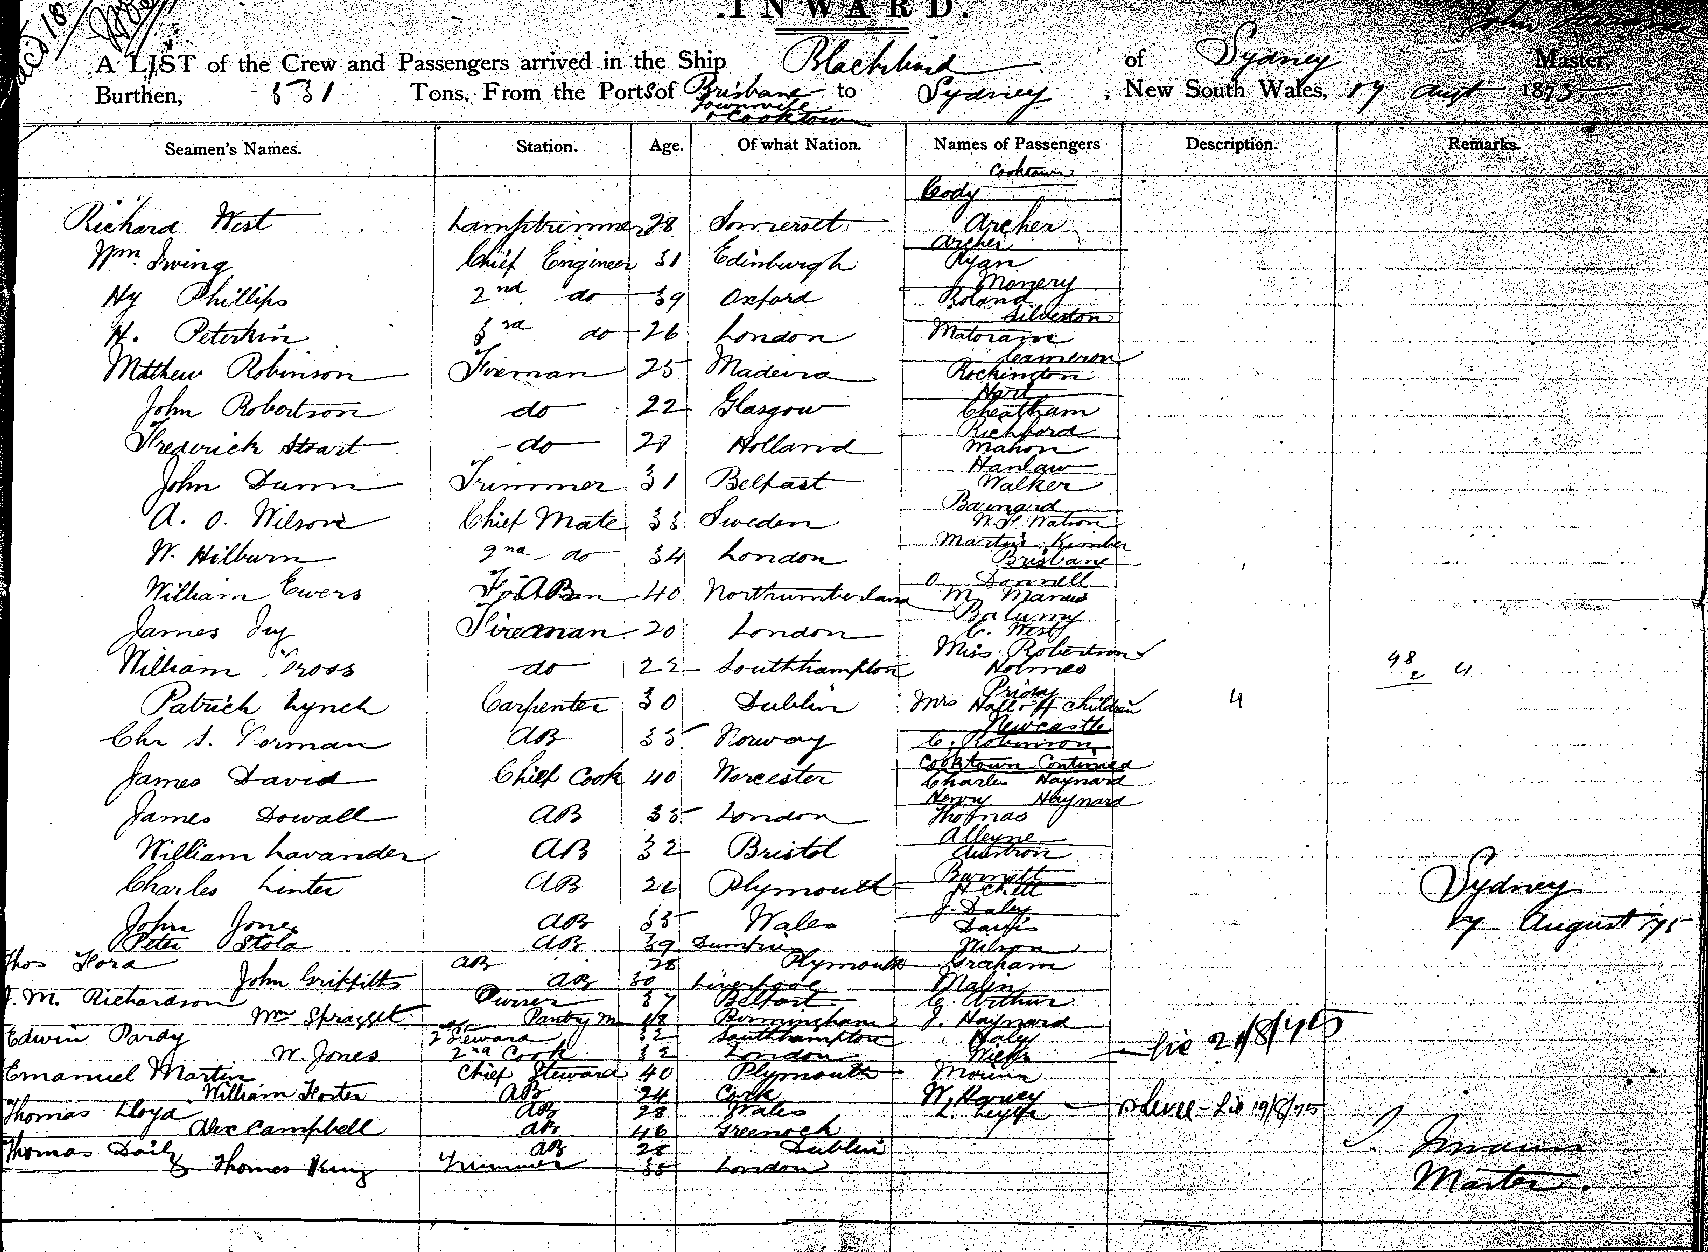 INWARD.
A LIST of the Crew and Passengers arrived in the Ship of Sydney Master,
Burthen, 531 Tons, From the Ports of Brisbane to Sydney, New South Wales, 17 Augt 1875
Townville
& Cooktown
Seamen's Names. Station. Age. Of what Nation. Names of Passengers Description. Remarks.
Cooktown
Cody
Richard West Lamptrimmer 28 Somerset Archer
Archer
Wm. Irving Chief Engineer 31 Edinburgh Ryan
Monery
Hy Phillips 2nd do 39 Oxford Boland
Silverston
H. Peterkin 3rd do 26 London
Cameron
Mathew Robinson Fireman 25 Madeira Rockington
Hart
John Robertson do 22 Glasgow Cheatham
Richford
Frederick Stuart do Holland Mahon
Hanlaw
John Dunn Trimmer 31 Belfast Walker
Barnard
A. O. Wilson Chief Mate 33 Sweden W. J. Watson
Martin Kimber
W. Hilburn 2nd do 34 London Brisbane
O Donnell
William Ewers AB 40 Northumberland
James Fireman 20 London C. West
Miss Robertson
William do 22 Southhampton Holmes 48
Patrick Lynch Carpenter 30 Dublin Mrs Hall & 4 children 4
Newcastle
Chr S. AB 35 Norway C. Robinson
Cooktown Continued
James David Chief Cook 40 Worcester Charles Haynard
Henry Haynard
James Dowall AB 35 London Thomas
Alleyne
William Lavander AB 32 Bristol
Barnett
Charles Linter AB Plymouth
J. Daley
John Jones AB 35 Wales Davis
Peter Stola AB 39 Wilson
Thos AB 28 Plymouth Graham
John Griffiths AB 30 Liverpool Malin
J. M. Richardson Purser 37 Belfast C. Arthur
Wm Spragget Pantry M 18 Birmingham J. Haynard
Edwin Pardy 2 Steward 32 Southhampton Haly
W. Jones 2nd Cook 32 London
Emanuel Martin Chief Steward 40 Plymouth
William Foster AB 24 Cork
Thomas Lloyd AB 28 Wales
Alex Campbell AB 46 Greenock
Thomas Daily AB 28 Dublin
Thomas King Trimmer 35 London
Sydney
17 August 75
21/8/75
19/8/75
Master.